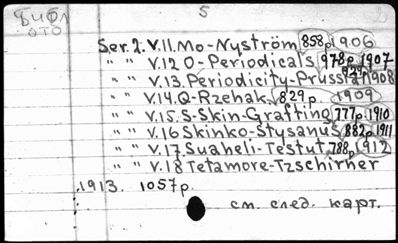 Библ 5
ОТО
Ser. 2. V.11. Mo-Nyström 858p 1906
" " V.12 O-Periodicals 978p 1907
" " V.13. Periodicity-Prussian 929 1908
" " V.14. Q-Rzehak 829 p. 1909
" " V.15. S-Skin-Grafting 777p. 1910
" " V.16 Skinko-Stysanus 882p 1911
" " V.17. Suaheli-Testut 788p 912
" " V.18 Tetamore-Tzschirner
1913. 1057p.
см. след. карт.